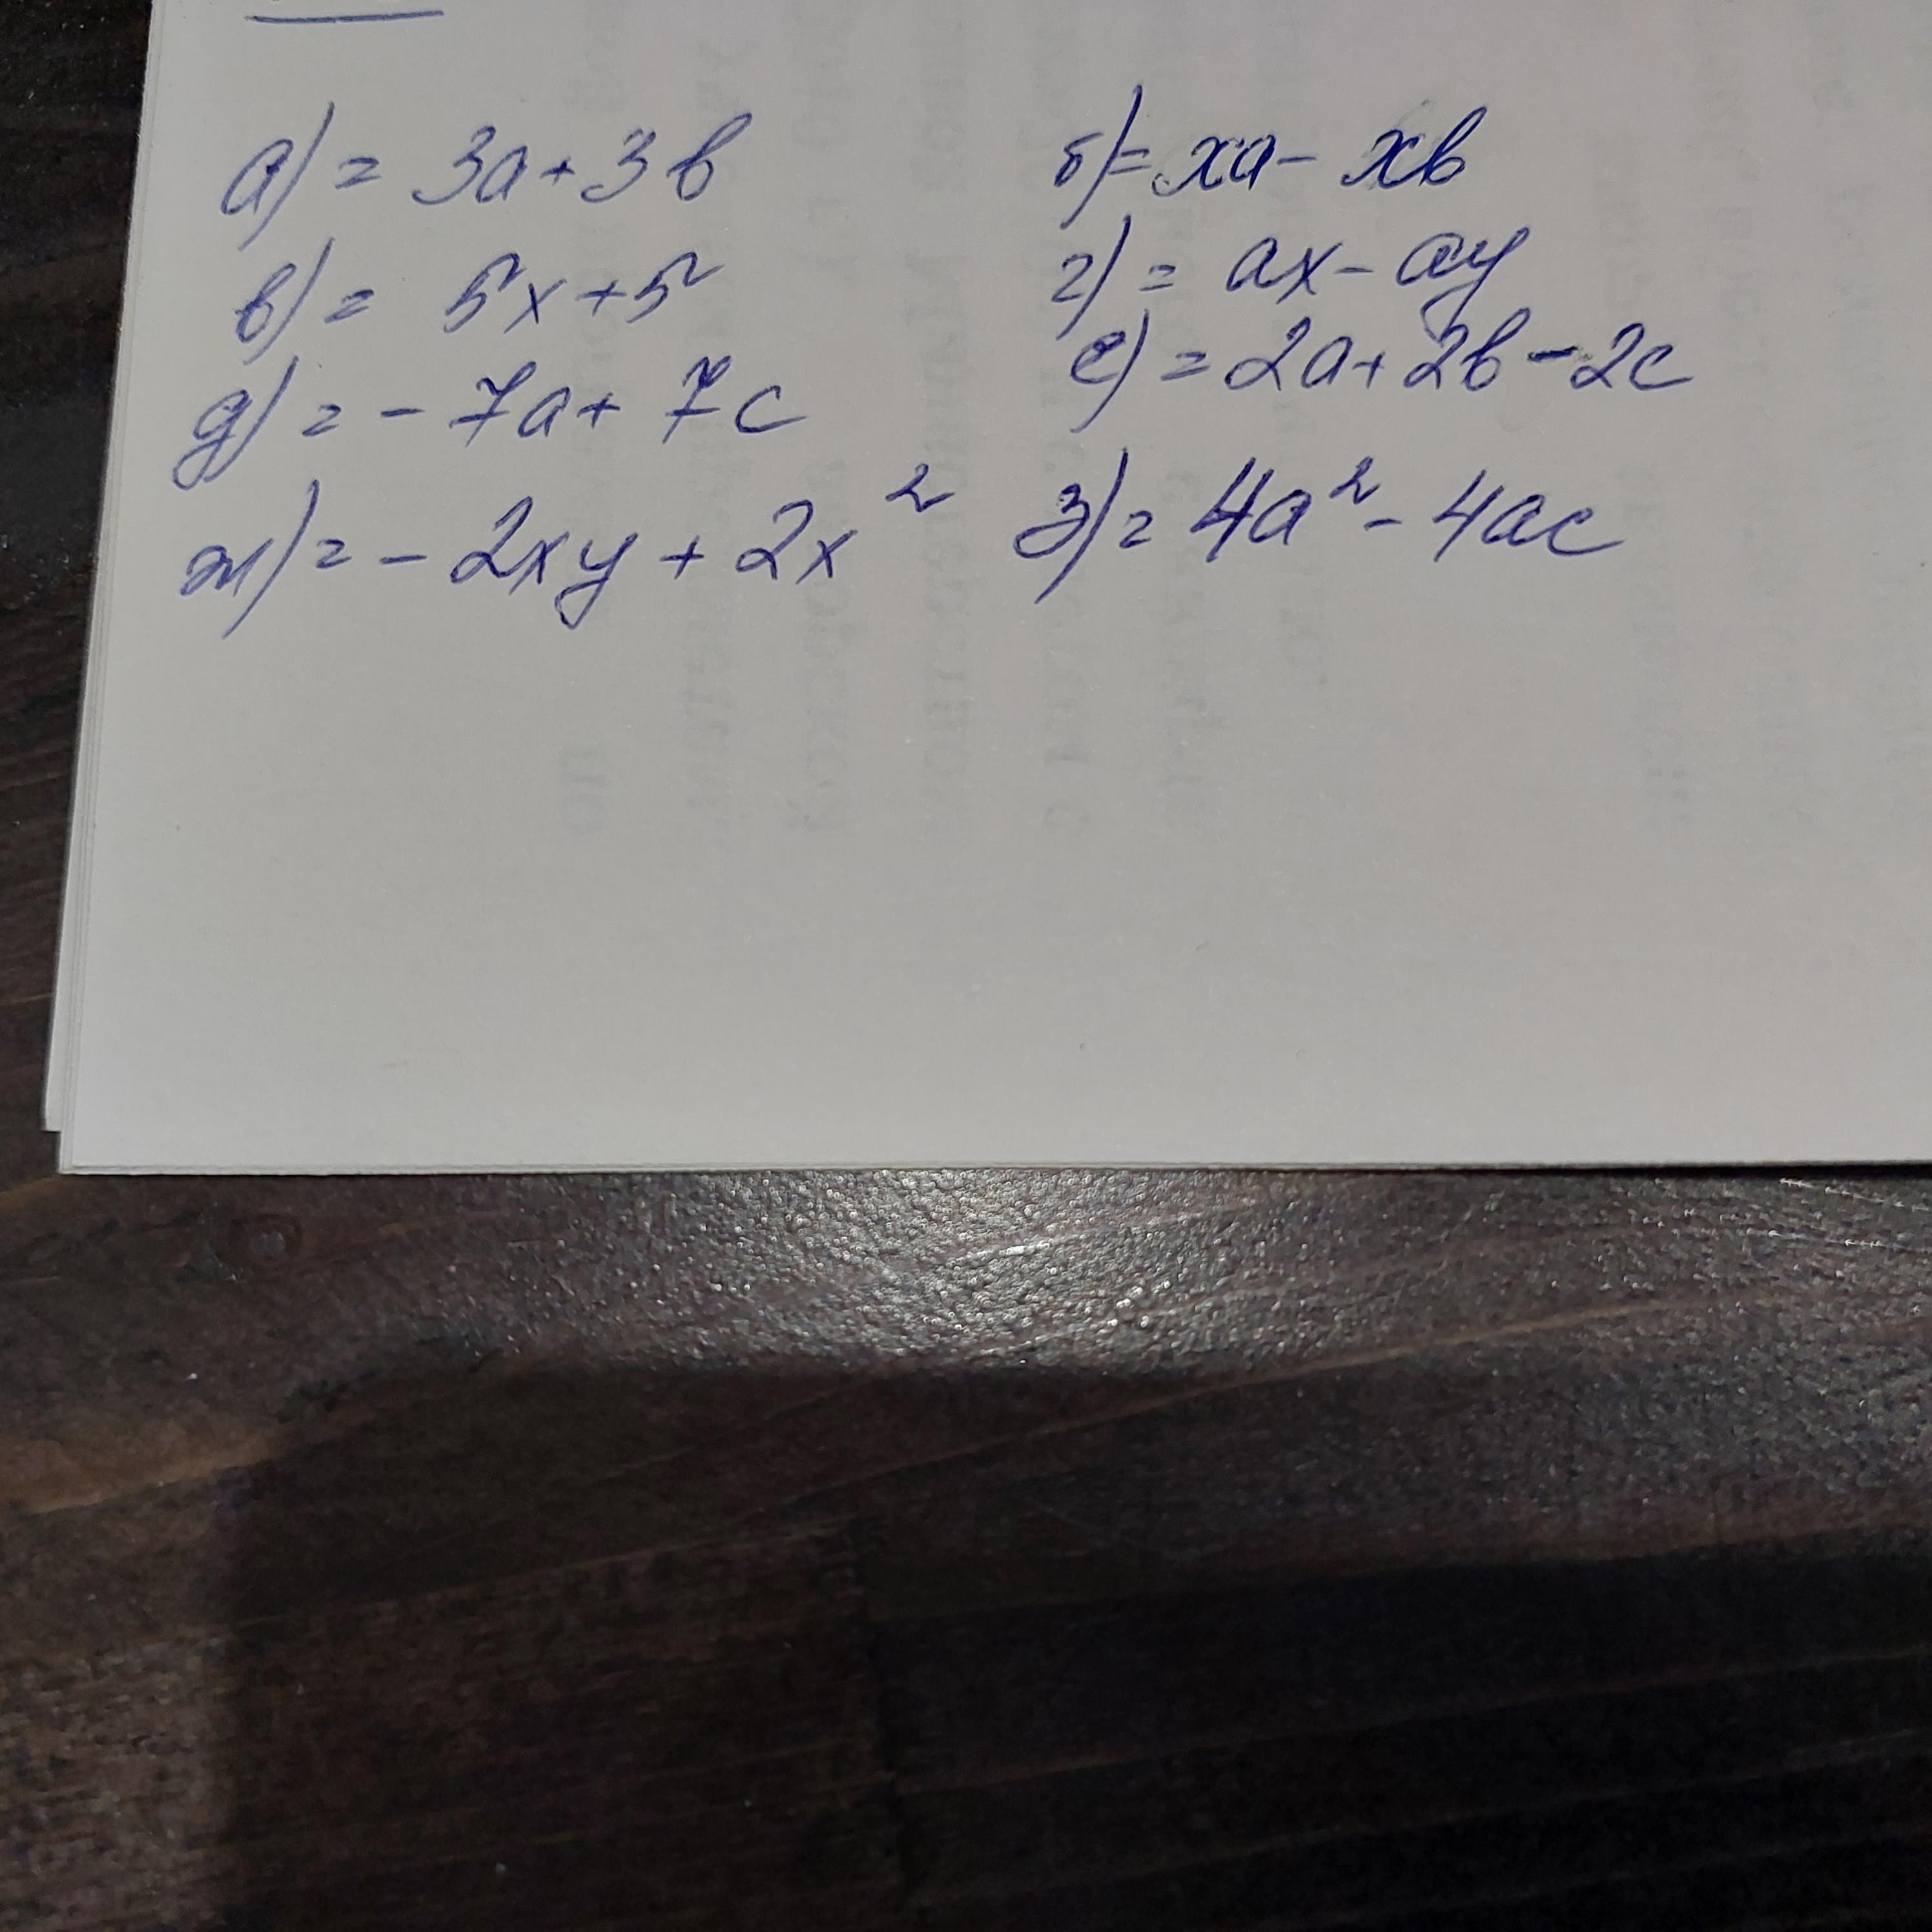 а) = 3a + 3b б) = xa - xb
в) = 5x + 5 г) = ax - ay
д) = - 7a + 7c е) = 2a + 2b - 2c
ж) = - 2xy + 2x² з) = 4a² - 4ac